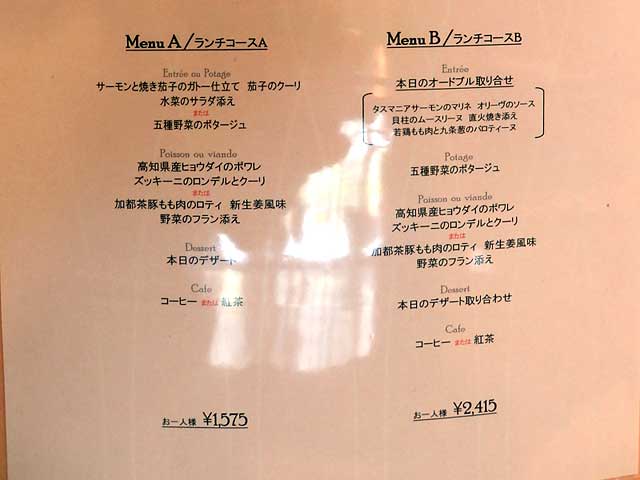 Menu A/ランチコースA
Entrée ou Potage
サーモンと焼き茄子のガトー仕立て 茄子のクーリ
水菜のサラダ添え
または
五種野菜のポタージュ
Poisson ou viande
高知県産ヒョウダイのポワレ
ズッキーニのロンデルとクーリ
または
加都茶豚もも肉のロティ 新生姜風味
野菜のフラン添え
Dessert
本日のデザート
Cafe
コーヒー または 紅茶
お一人様 ¥1,575
Menu B/ランチコースB
Entrée
本日のオードブル取り合せ
タスマニアサーモンのマリネ オリーヴのソース
貝柱のムースリーヌ 直火焼き添え
若鶏もも肉と九条葱のバロティーヌ
Potage
五種野菜のポタージュ
Poisson ou viande
高知県産ヒョウダイのポワレ
ズッキーニのロンデルとクーリ
または
加都茶豚もも肉のロティ 新生姜風味
野菜のフラン添え
Dessert
本日のデザート取り合わせ
Cafe
コーヒー または 紅茶
お一人様 ¥2,415